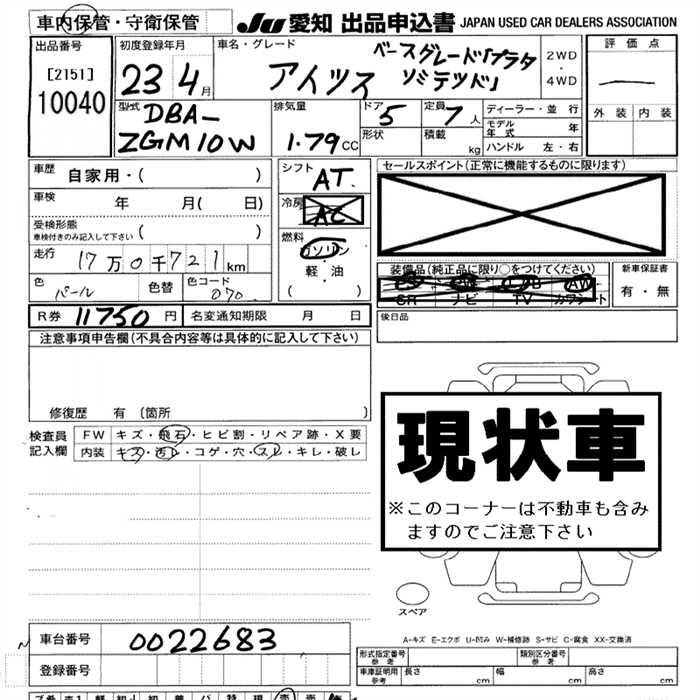 車内保管・守衛保管 JU 愛知 出品申込書 JAPAN USED CAR DEALERS ASSOCIATION
出品番号 初度登録年月 車名・グレード 評価点
[2151] 10040
23 4月
アイシス ベースグレード「プラタ
2WD
4WD
外装 内装
型式 DBA-
ZGM10W
排気量 1.79CC
ドア 5 定員 7人
形状 積載 kg
ディーラー・並行
モデル年式 年
ハンドル 左・右
車歴 自家用・( )
車検 年 月( 日)
受検形態
車検付きのみ記入して下さい ( )
走行 17万0千721km
色 パール 色替 色コード 070
R券 11750円 名変通知期限 月 日
シフト AT
冷房 AC
燃料 ガソリン
・
軽・油
( )
セールスポイント(正常に機能するものに限ります)
装備品(純正品に限り○をつけてください)
SR ナビ TV カワシート
新車保証書
有・無
後日品
注意事項申告欄(不具合内容等は具体的に記入して下さい)
修復歴 有(箇所 )
検査員記入欄
FW キズ・飛石・ヒビ割・リペア跡・X要
内装 キズ・汚レ・コゲ・穴・スレ・キレ・破レ
現状車
※このコーナーは不動車も含み
ますのでご注意下さい
スペア
A-キズ E-エクボ U-凹み W-補修跡 S-サビ C-腐食 XX-交換済
車台番号 0022683
登録番号
形式指定番号 参考 類別区分番号 参考
車庫証明用 参考 長さ cm 幅 cm 高さ cm